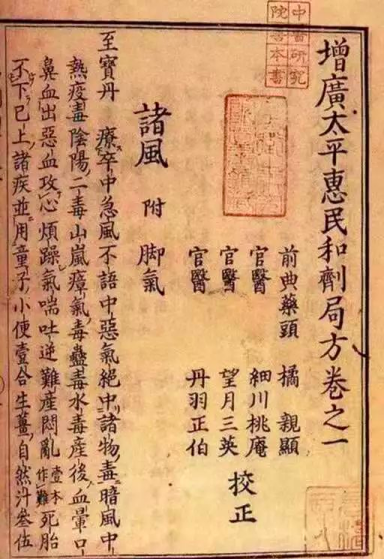 中醫研究
院善本書
增廣太平惠民和劑局方卷之一
前典藥頭 橘 親顯
官醫 細川桃庵
官醫 望月三英
官醫 丹羽正伯
校正
諸風 附 脚氣
至寶丹 療卒中急風不語中惡氣絕中諸物毒暗風中
熱疫毒陰陽二毒山嵐瘴氣毒蠱毒水毒產後血暈口
鼻血出惡血攻心煩躁氣喘吐逆難產悶亂壹本作難死胎
不下已上諸疾並用童子小便壹合生薑自然汁叁伍